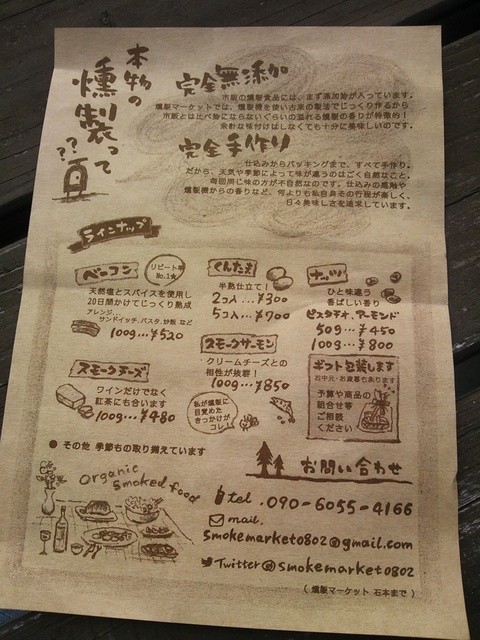 本物の
燻製って
???
完全無添加
市販の燻製食品には、まず添加物が入っています。
燻製マーケットでは、燻製機を使い古来の製法でじっくり作るから
市販とは比べ物にならないぐらいの溢れる燻製の香りが特徴的！
余計な味付けはしなくても十分に美味しいのです。
完全手作り
仕込みからパッキングまで、すべて手作り。
だから、天気や季節によって味が違うのはごく自然なこと。
毎回同じ味の方が不自然なのです。仕込みの感触や
燻製機からの香りなど、何よりも私自身その行程が楽しく、
日々美味しさを追求しています。
ラインナップ
ベーコン
リピート率
No.1★
天然塩とスパイスを使用し
20日間かけてじっくり熟成
アレンジ...
サンドイッチ、パスタ、炒飯 など
100g...¥520
スモークチーズ
ワインだけでなく
紅茶にも合います
100g...¥480
くんたま
半熟仕立て！
2コ入...¥300
5コ入...¥700
スモークサーモン
クリームチーズとの
相性が抜群！
100g...¥850
私が燻製に
目覚めた
きっかけが
コレ
ナッツ
ひと味違う
香ばしい香り
ピスタチオ、アーモンド
50g...¥450
100g...¥800
ギフト包装します
お中元・お歳暮もあります
予算や商品の
組合せ等
ご相談
ください
● その他 季節もの取り揃えています
Organic
Smoked food
お問い合わせ
tel .090-6055-4166
mail.
smokemarket0802@gmail.com
Twitter@smokemarket0802
( 燻製マーケット 石本まで )